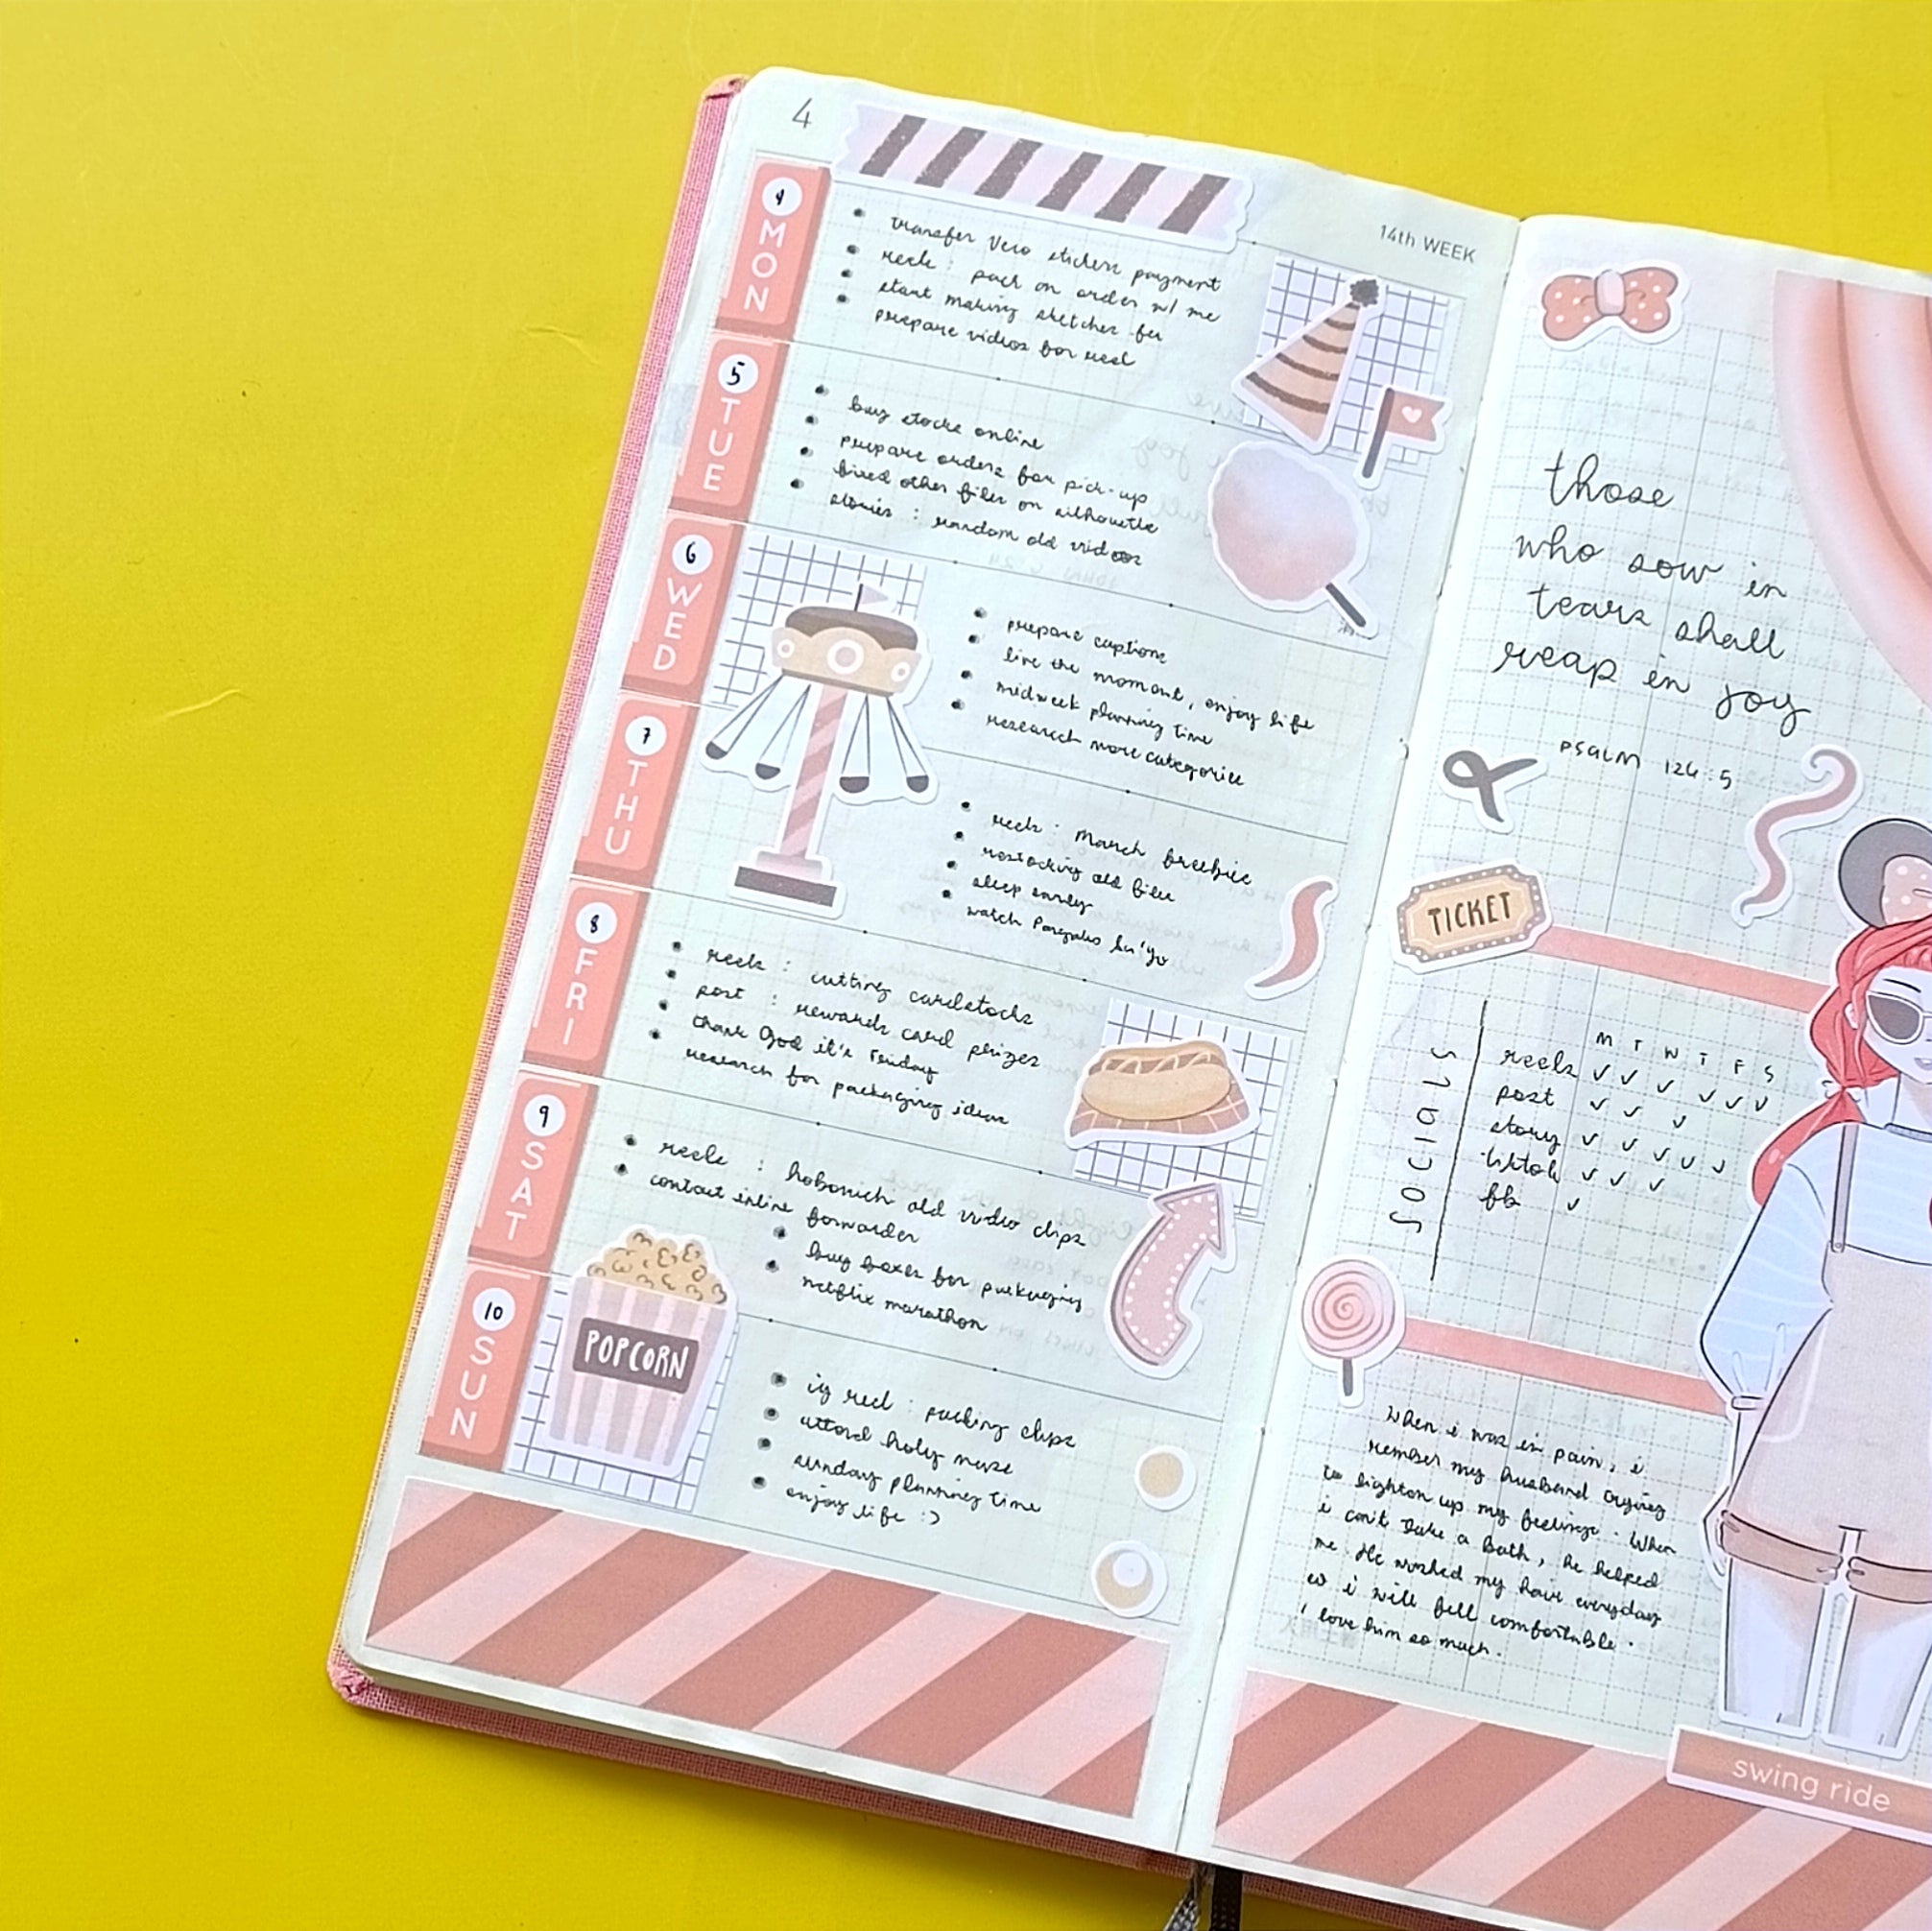 4
14th WEEK
4
MON
transfer Vero stickers payment
reels : pack an order w/ me
start making sketches for
prepare videos for reel
5
TUE
buy stocks online
prepare orders for pick-up
fixed other files on silhouette
stories : random old videos
6
WED
prepare captions
live the moment, enjoy life
midweek planning time
research more categories
7
THU
reels : March freebies
restocking old files
sleep early
watch
8
FRI
reels : cutting cardstocks
post : rewards card prizes
thank God it's Friday
research for packaging ideas
9
SAT
reels : hobonich old video clips
contact inline forwarder
buy boxes for packaging
netflix marathon
10
SUN
POPCORN
ig reel : packing clips
attend holy mass
sunday planning time
enjoy life :)
those
who sow in
tears shall
reap in joy
PSALM 126:5
TICKET
SOCIALS
M T W T F S
reels ✓ ✓ ✓ ✓ ✓ ✓
post ✓ ✓ ✓
story ✓ ✓ ✓ ✓ ✓
tiktok ✓ ✓ ✓
fb ✓
When i was in pain, i
remember my husband trying
to lighten up my feelings. When
i can't take a bath, he helped
me. He washed my hair everyday
so i will fell comfortable.
I love him so much.
swing ride